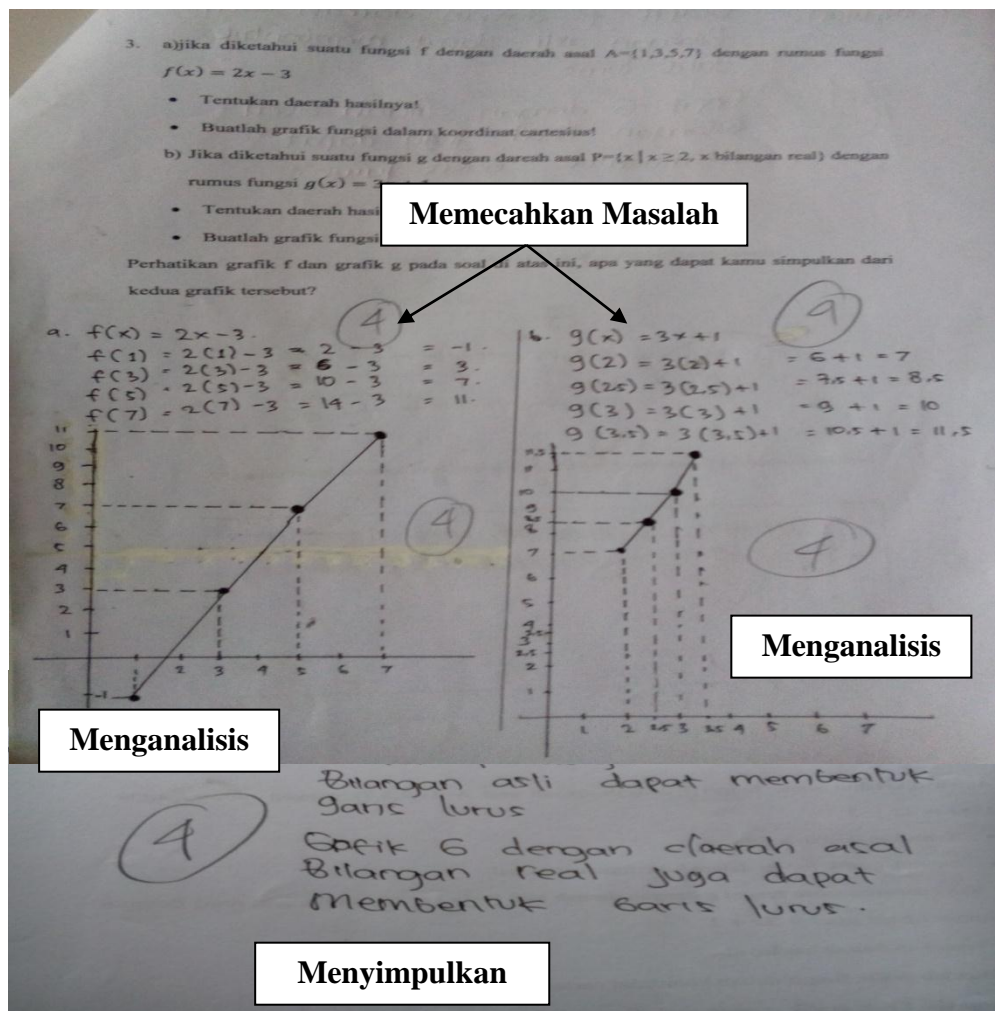 3. a)jika diketahui suatu fungsi f dengan daerah asal A={1,3,5,7} dengan rumus fungsi
f(x) = 2x − 3
• Tentukan daerah hasilnya!
• Buatlah grafik fungsi dalam koordinat cartesius!
b) Jika diketahui suatu fungsi g dengan dareah asal P={x | x ≥ 2, x bilangan real} dengan
rumus fungsi g(x) = 3
• Tentukan daerah hasi
• Buatlah grafik fungsi
Memecahkan Masalah
Perhatikan grafik f dan grafik g pada soal di atas ini, apa yang dapat kamu simpulkan dari
kedua grafik tersebut?
4
a. f(x) = 2x - 3.
f(1) = 2(1) - 3 = 2 - 3 = -1.
f(3) = 2(3) - 3 = 6 - 3 = 3.
f(5) = 2(5) - 3 = 10 - 3 = 7.
f(7) = 2(7) - 3 = 14 - 3 = 11.
11
10
9
8
7
6
5
4
3
2
1
-1
2 3 4 5 6 7
4
Menganalisis
b. g(x) = 3x + 1
g(2) = 3(2) + 1 = 6 + 1 = 7
g(2,5) = 3(2,5) + 1 = 7,5 + 1 = 8,5
g(3) = 3(3) + 1 = 9 + 1 = 10
g(3,5) = 3(3,5) + 1 = 10,5 + 1 = 11,5
11,5
10
9
8
7
6
5
4
3
2,5
2
1
1 2 2,5 3 3,5 4 5 6 7
4
Menganalisis
Bilangan asli dapat membentuk
garis lurus
4
Grafik G dengan daerah asal
Bilangan real juga dapat
membentuk garis lurus.
Menyimpulkan